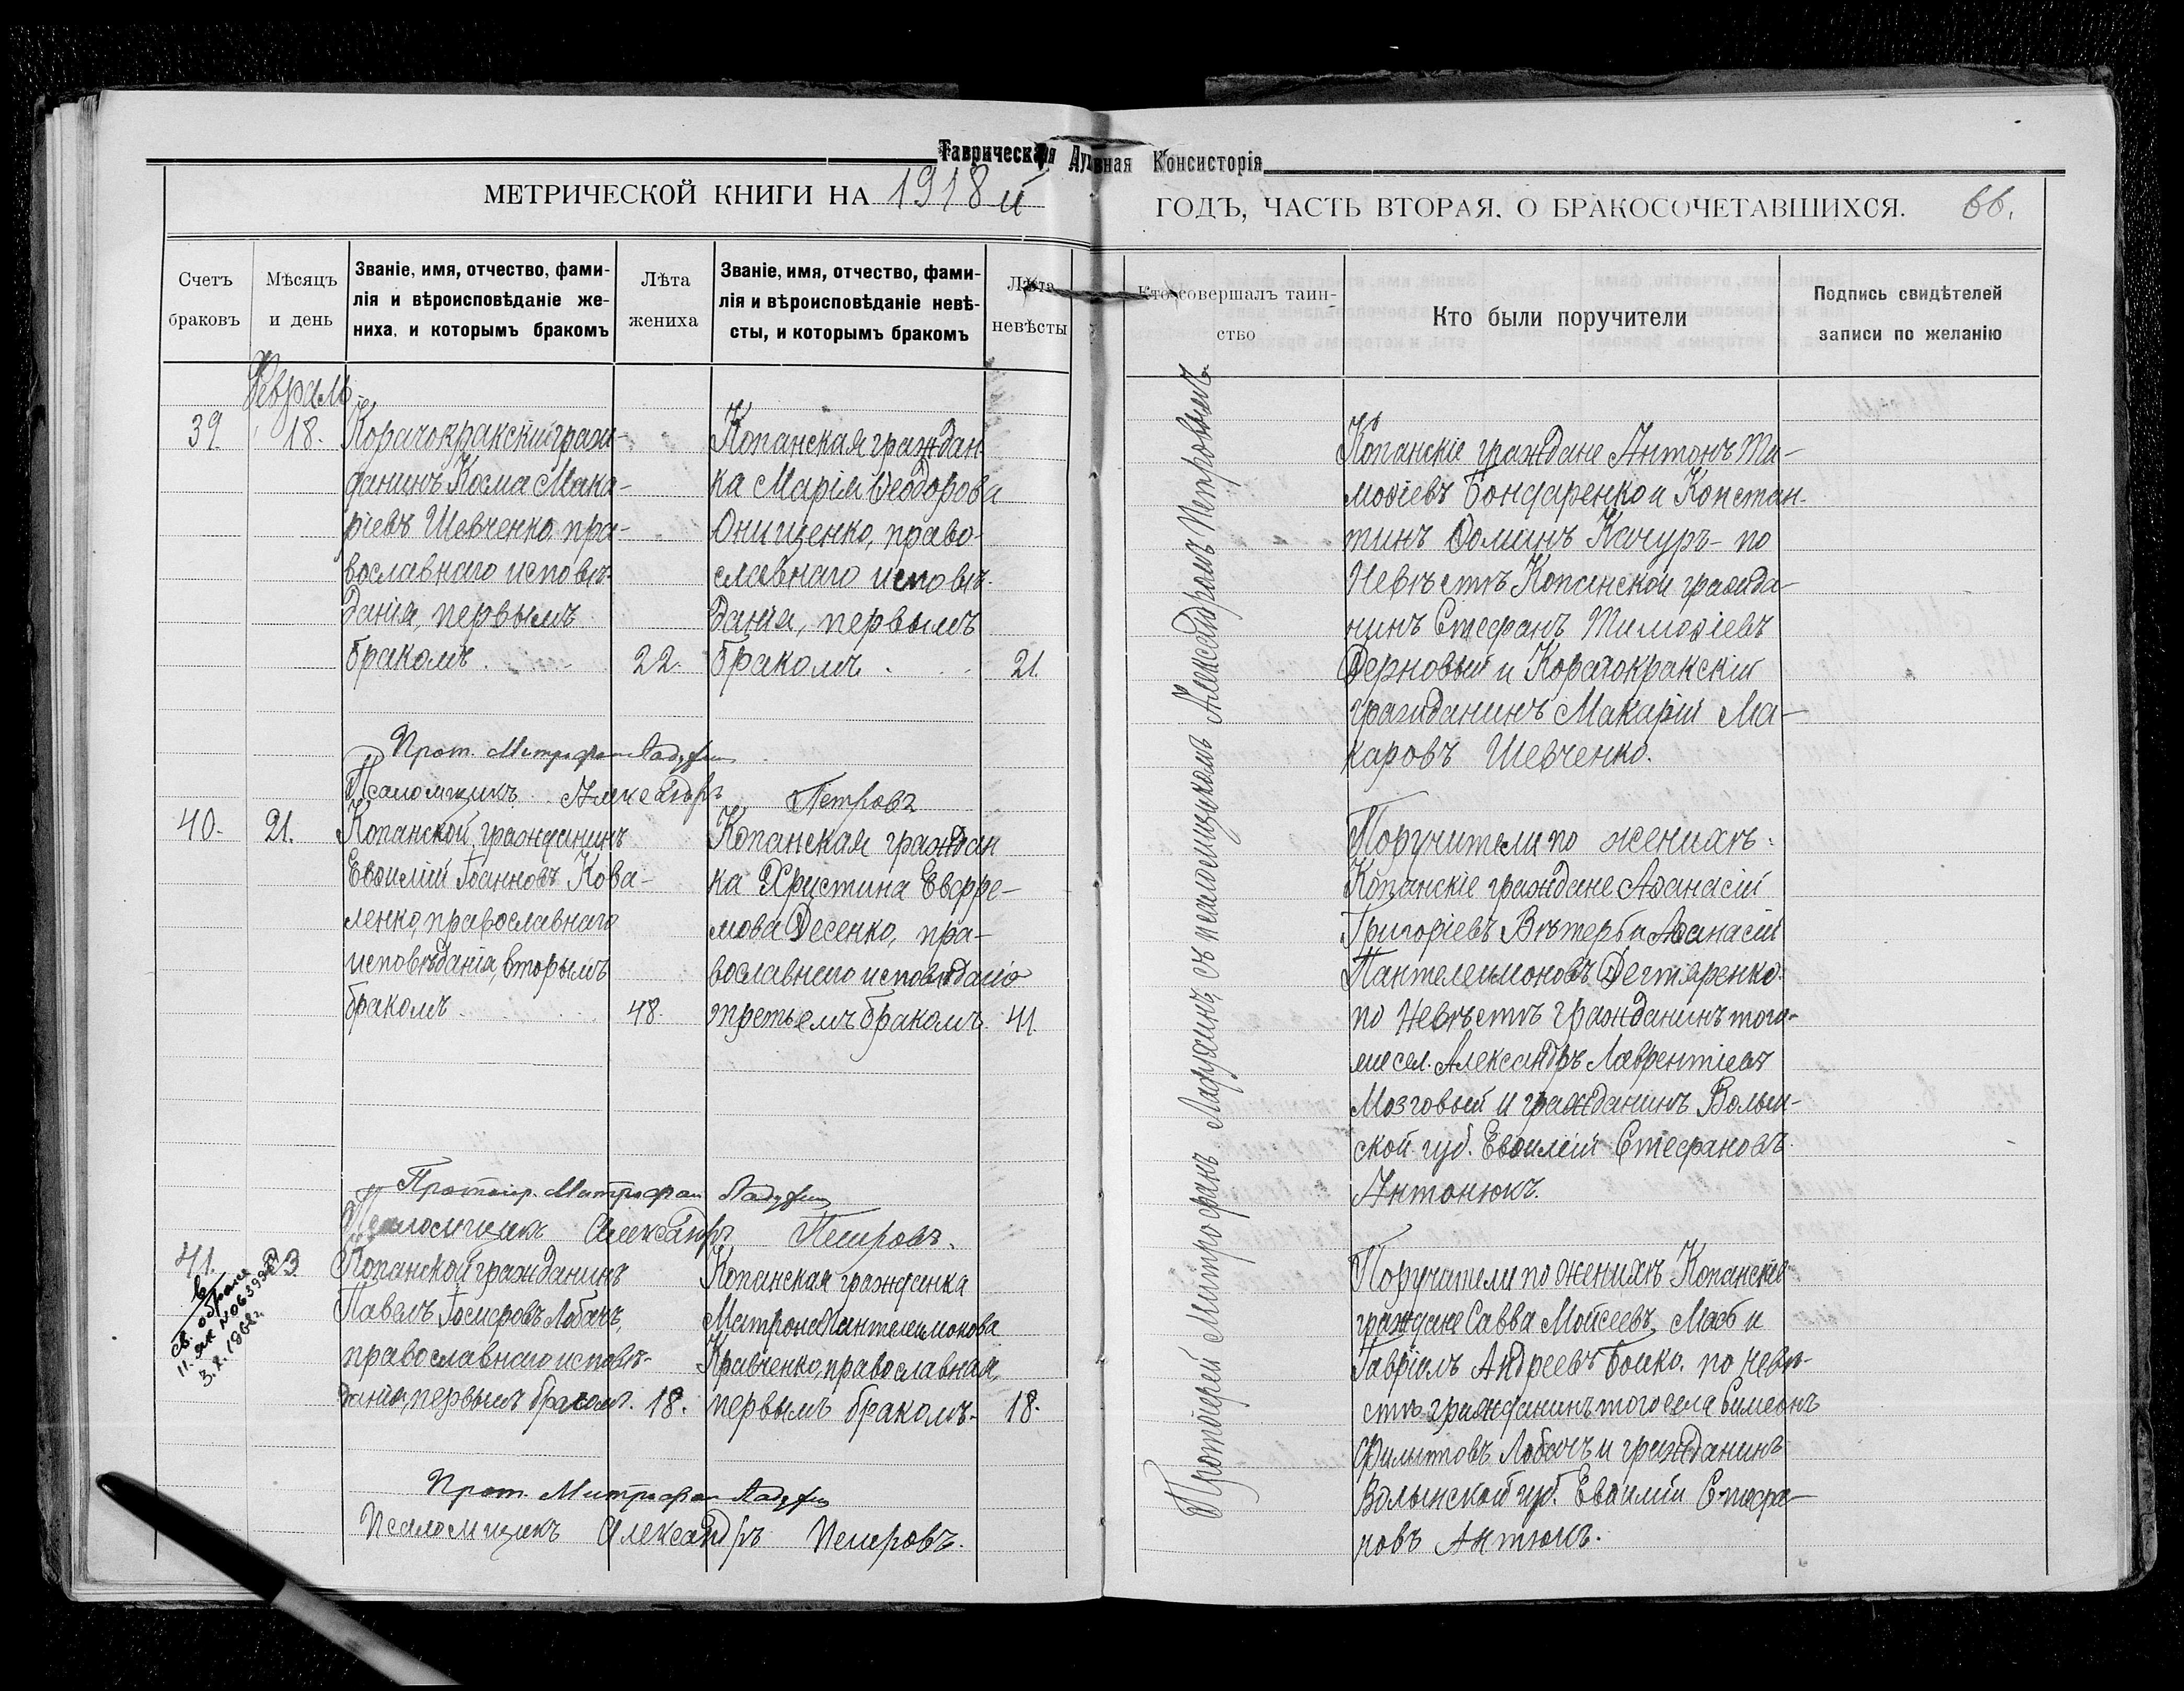 Таврическая Духовная Консисторія
МЕТРИЧЕСКОЙ КНИГИ НА 1918 й
ГОДЪ, ЧАСТЬ ВТОРАЯ, О БРАКОСОЧЕТАВШИХСЯ. 66.
Счетъ браковъ
Мѣсяцъ и день
Званіе, имя, отчество, фами-
лія и вѣроисповѣданіе же-
ниха, и которымъ бракомъ
Лѣта жениха
Званіе, имя, отчество, фами-
лія и вѣроисповѣданіе невѣ-
сты, и которымъ бракомъ
Лѣта невѣсты
Кто совершалъ таин-
ство
Кто были поручители
Подпись свидѣтелей
записи по желанію
Февраль
39. 18.
Корагокракскій граж-
данинъ Косма Мака-
ріевъ Шевченко, пра-
вославнаго исповѣ-
данія, первымъ
бракомъ. 22.
Копанская граждан
ка Марія Ѳеодорова
Онищенко, право-
славнаго исповѣ-
данія, первымъ
бракомъ. 21.
Копанскіе граждане Антонъ Ти-
моѳіевъ Бондаренко и Констан-
тинъ Ѳоминъ Качуръ - по
Невѣстѣ Копанской гражда-
нинъ Стефанъ Тимоѳіевъ
Дерновый и Корагокракскій
гражданинъ Макарій Ма-
каровъ Шевченко.
Прот. Митрофан Ладухин
Псаломщикъ Александръ Петровъ
40. 21.
Копанской гражданинъ
Евѳимій Іоанновъ Кова-
ленко, православнаго
исповѣданія, вторымъ
бракомъ. 48.
Копанская граждан
ка Христина Евфре-
мова Десенко, пра-
вославнаго исповѣданія
третьемъ бракомъ. 41.
Поручители по женихѣ:
Копанскіе граждане Аѳанасій
Григоріевъ Вѣтеръ и Аѳанасій
Пантелеимоновъ Дегтяренко.
по Невѣстѣ гражданинъ того-
же сел. Александръ Лаврентіевъ
Мозговый и гражданинъ Волын-
ской губ. Евѳимій Стефановъ
Антонюкъ.
Протоіер. Митрофан Ладухин
Псаломщикъ Александръ Петровъ.
41. 23
св. о браке
11. ЯК N 063998
3.X.1962г.
Копанской гражданинъ
Павелъ Лобачъ,
православнаго исповѣ-
данія, первымъ бракомъ. 18.
Копанская гражданка
Матрона Пантелеимонова
Кравченко, православная,
первымъ бракомъ. 18.
Поручители по женихѣ Копанскіе
граждане Савва Мойсеевъ и
Гавріилъ Андреевъ Бойко. по невѣ-
стѣ гражданинъ того села Симеонъ
Филиповъ Лобачъ и гражданинъ
Волынской губ. Евѳимій Стефа-
новъ Антюкъ.
Прот. Митрофан Ладухин
Псаломщикъ Александръ Петровъ.
Протоіерей Митрофанъ Ладухинъ, съ псаломщикомъ Александромъ Петровымъ.